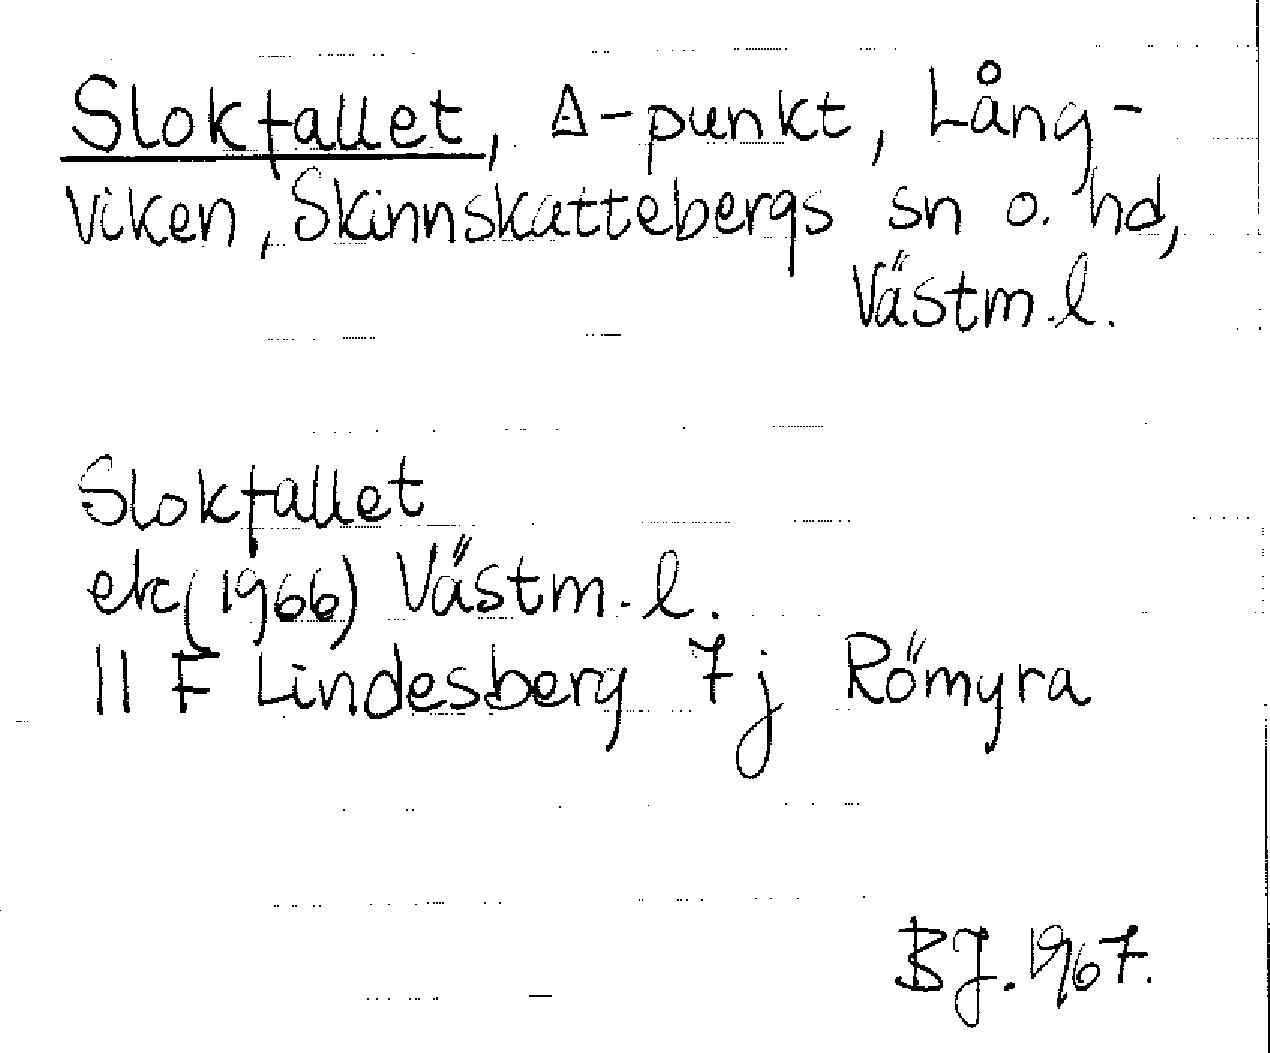 Slokfallet, △-punkt, Lång-
viken, Skinnskattebergs sn o. hd,
Västm.l.
Slokfallet
ek (1966) Västm.l.
11 F Lindesberg 7j Römyra
BJ. 1967.